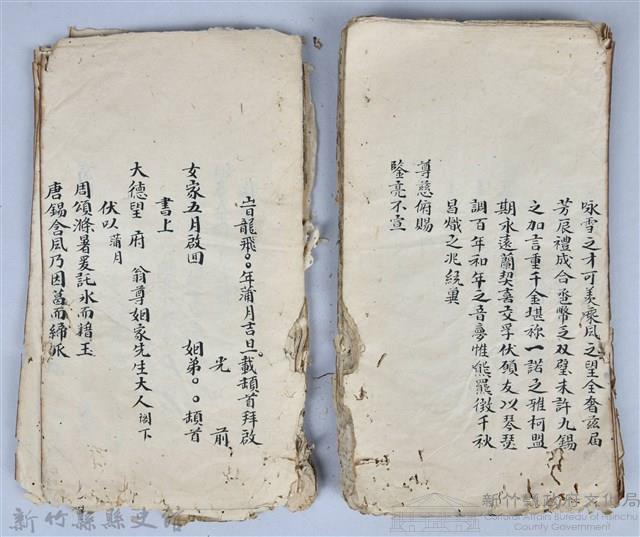 咏雪之才可羨乘凤之望全奢茲届
芳辰禮成合巹幣乏双璧未許九錫
之加言重千金堪称一諾之雅柯盟
期永遠蘭契喜交孚伏願友以琴瑟
調百年和年之音夢惟熊羆徵千秋
昌熾之兆統兾
尊慈俯賜
鑒亮不宣
旹龍飛○○年蒲月吉日。載頡首拜啟
光前
女家五月啟回 姻弟○○頡首
書上
大德望 府 翁尊姻家先生大人 阁下
伏以 蒲月
周頌滌暑爰託氷而藉玉
唐錫含風乃因蔦而締
新竹縣縣史館
新竹縣政府文化局
Cultural Affairs Bureau of Hsinchu
County Government